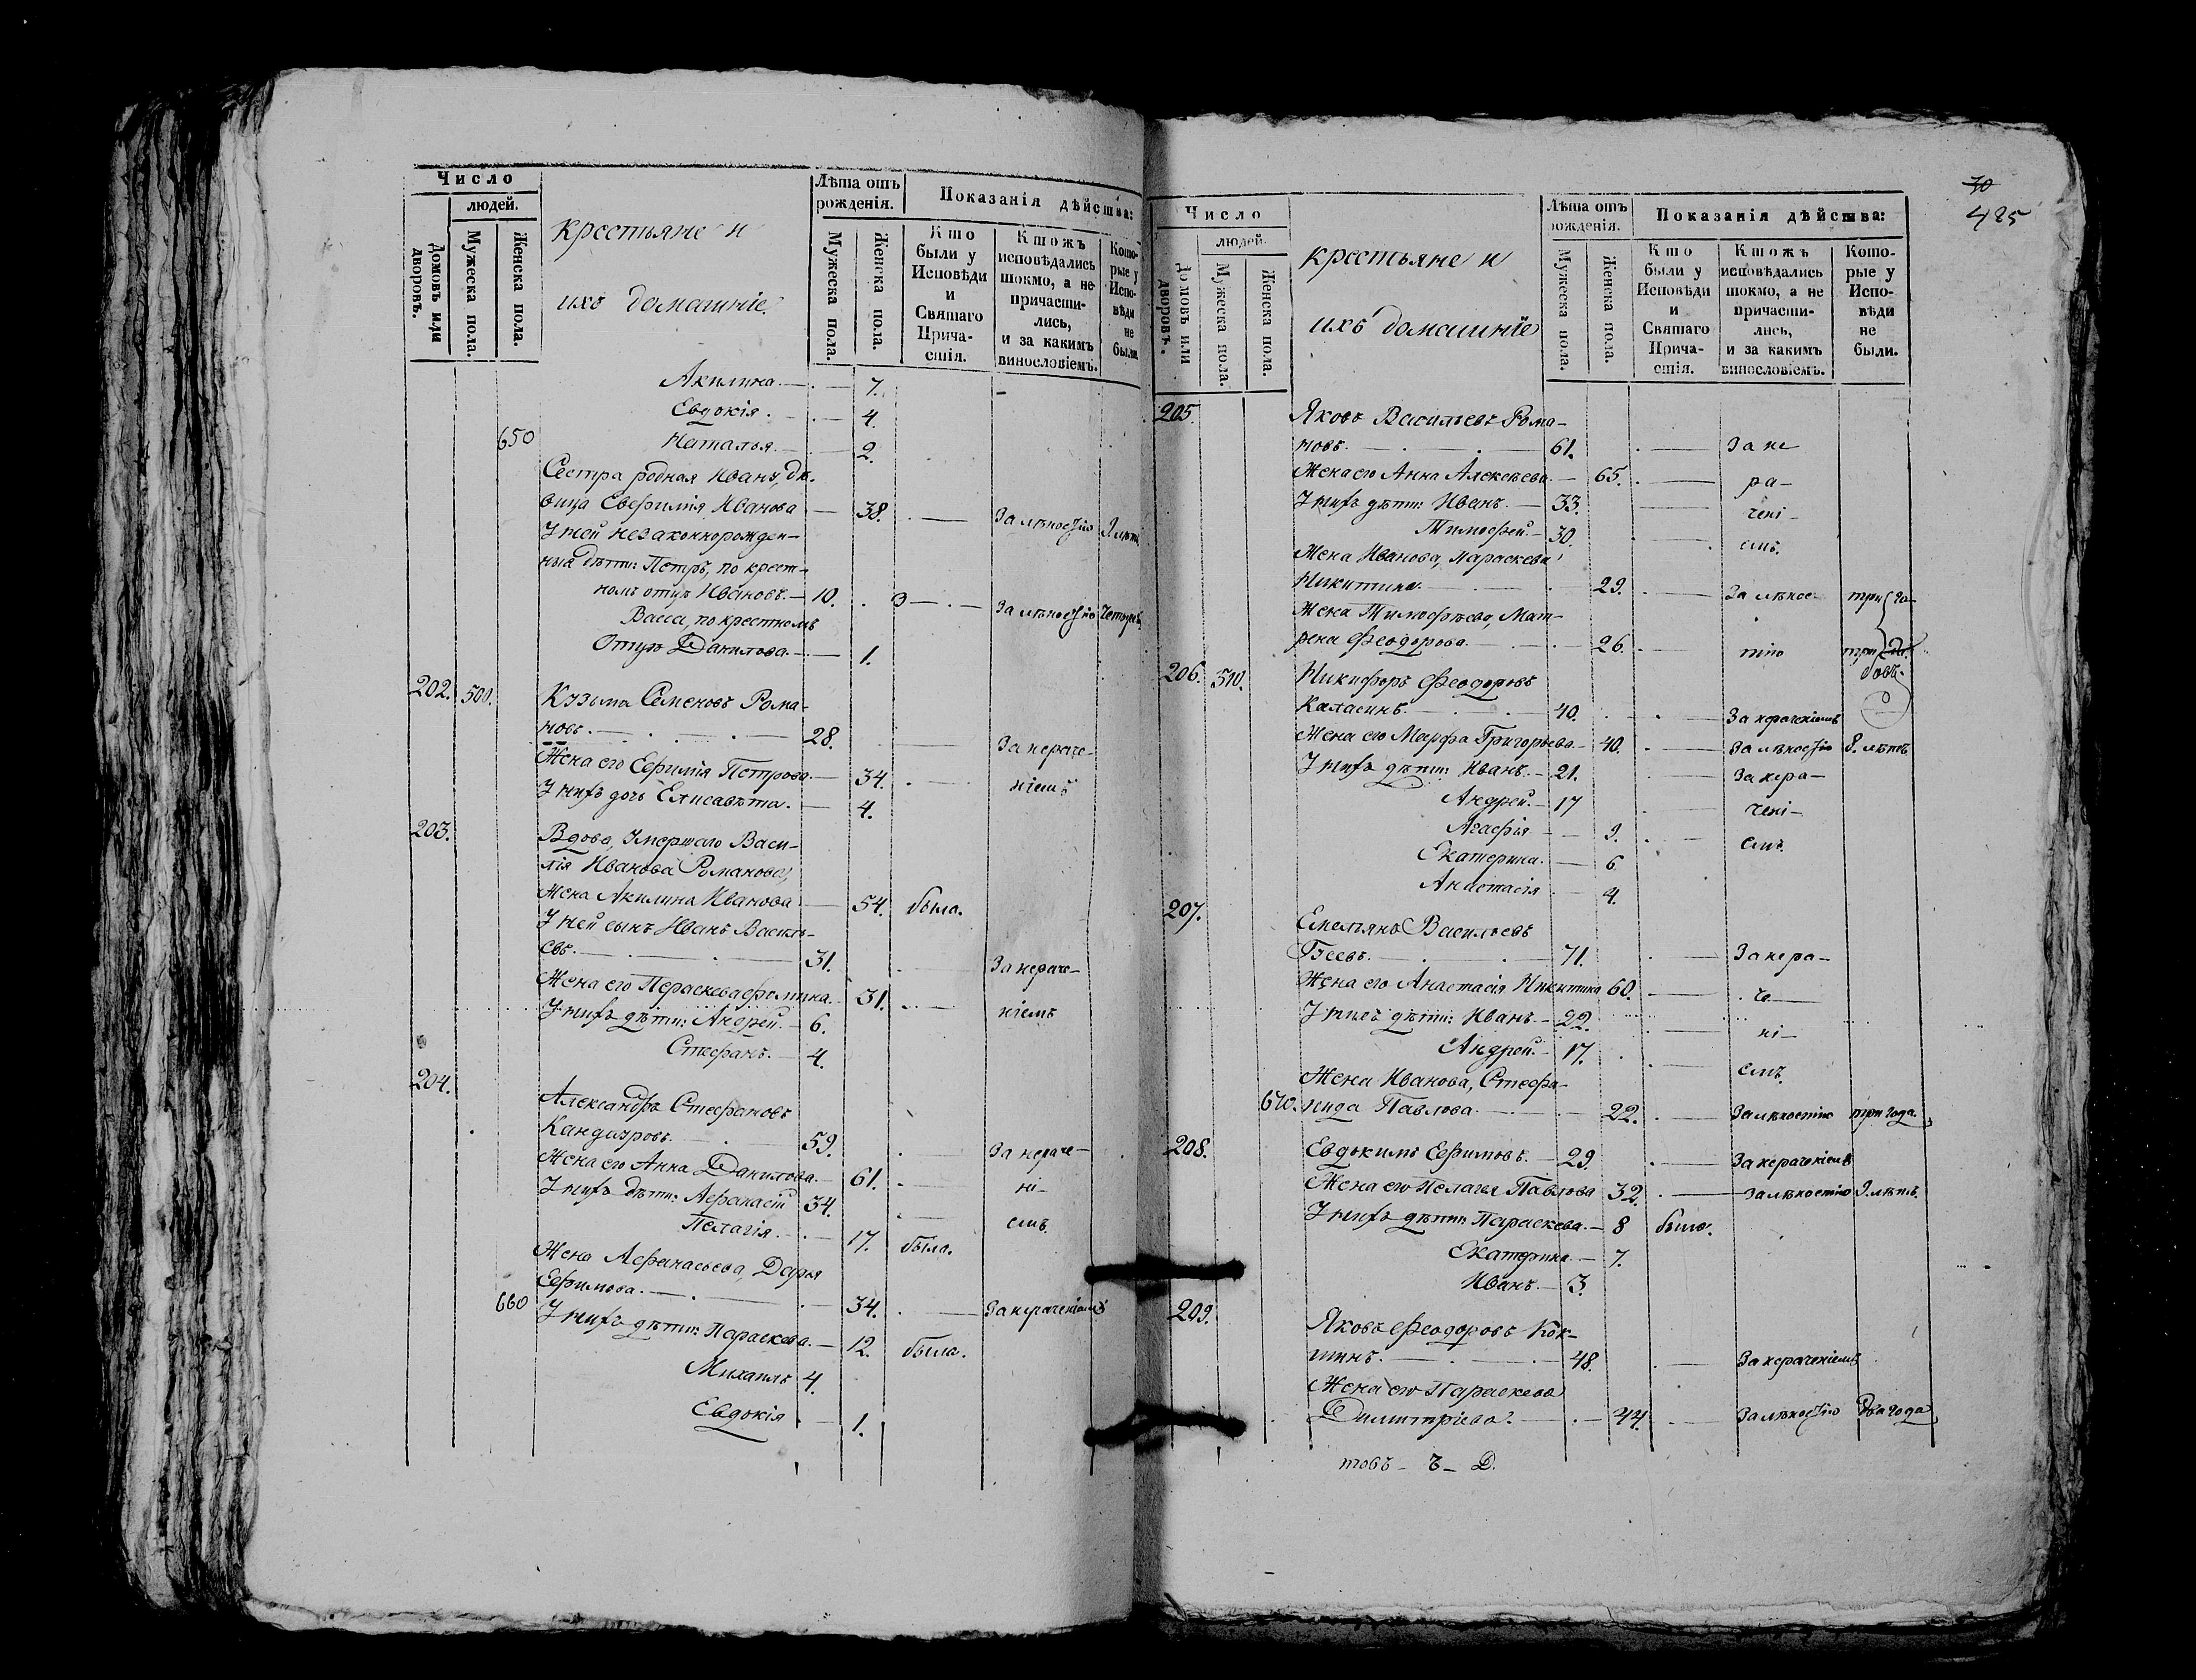 Число
людей.
Домовъ или дворовъ.
Мужеска пола.
Женска пола.
крестьяне и
ихъ домашніе.
Лѣта отъ рожденія.
Мужеска пола.
Женска пола.
Показанія дѣйства:
Кто были у Исповѣди и Святаго Причастія.
Ктожъ исповѣдались токмо, а не причастились, и за какимъ винословіемъ.
Которые у Исповѣди не были.
Акилина. — 7.
Евдокія. — 4.
650 Наталья. — 2.
Сестра родная Ивану, дѣ-
вица Евфимія Иванова — 38. — За лѣностію
У ней незаконнорожден-
ныя дѣти: Петръ, по крест-
номъ отцѣ Ивановъ. — 10. — За лѣностію
Васса, по крестномъ
Отцѣ Данилова. — 1.
202. 500. Кузьма Семеновъ Рома-
новъ. — 28. — За нераче-
Жена его Ефимія Петрова. — 34. — ніемъ
У нихъ дочь Елисавета. — 4.
203. Вдова, Умершаго Васи-
лія Иванова Романова,
Жена Акилина Иванова — 54. была.
У ней сынъ Иванъ Василь-
евъ. — 31. — За нераче-
Жена его Параскева Фомина. — 31. — ніемъ
У нихъ дѣти: Андрей. — 6.
Стефанъ. — 4.
204.
Александръ Стефановъ
Кандауровъ. — 59. — За нераче-
Жена его Анна Данилова. — 61. — ні-
У нихъ дѣти: Афанасій 34. — емъ
Пелагія. — 17. была.
Жена Афанасьева, Дарья
Ефимова. — 34. — За нераченіемъ
660 У нихъ дѣти: Параскева. — 12. была.
Михаилъ 4.
Евдокія — 1.
30
485
Число
людей.
Домовъ или дворовъ.
Мужеска пола.
Женска пола.
крестьяне и
ихъ домашніе
Лѣта отъ рожденія.
Мужеска пола.
Женска пола.
Показанія дѣйства:
Кто были у Исповѣди и Святаго Причастія.
Ктожъ исповѣдались токмо, а не причастились, и за какимъ винословіемъ.
Которые у Исповѣди не были.
205. Яковъ Васильевъ Рома-
новъ. — 61. — За не
Жена его Анна Алексѣева. — 65. — ра-
У нихъ дѣти: Иванъ. — 33. — чені-
Тимофей. — 30. — емъ.
Жена Иванова, Параскева
Никитина. — 29. — За лѣнос- три го-
Жена Тимофѣева, Мат-
рена Феодорова. — 26. — тію три
206. 510. Никифоръ Феодоровъ
Каласинъ. — 40. — За нераченіемъ
Жена его Марфа Григорьева — 40. — За лѣностію 8. лѣтъ
У нихъ дѣти: Иванъ. — 21. — За нера-
Андрей. — 17 — чені-
Агафія — 9. — емъ.
Екатерина. — 6
Анастасія — 4.
207.
Емельянъ Васильевъ
71. — За нера-
Жена его Анастасія Никитина 60. — че-
У нихъ дѣти: Иванъ. — 22. — ні-
Андрей. — 17. — емъ.
Жена Иванова, Стефа-
670. нида Павлова. — 22. — За лѣностію три года
208. Евдокимъ Ефимовъ. — 29. — За нераченіемъ
Жена его Пелагея Павлова 32. — За лѣностію 9. лѣтъ.
У нихъ дѣти: Параскева. — 8 была.
Екатерина — 7.
Иванъ. — 3.
209.
Яковъ Феодоровъ Кок-
шинъ. — 48. — За нераченіемъ
Жена его Параскева
Димитріева. — 44. — За лѣностію два года
товъ – Ъ – Д.